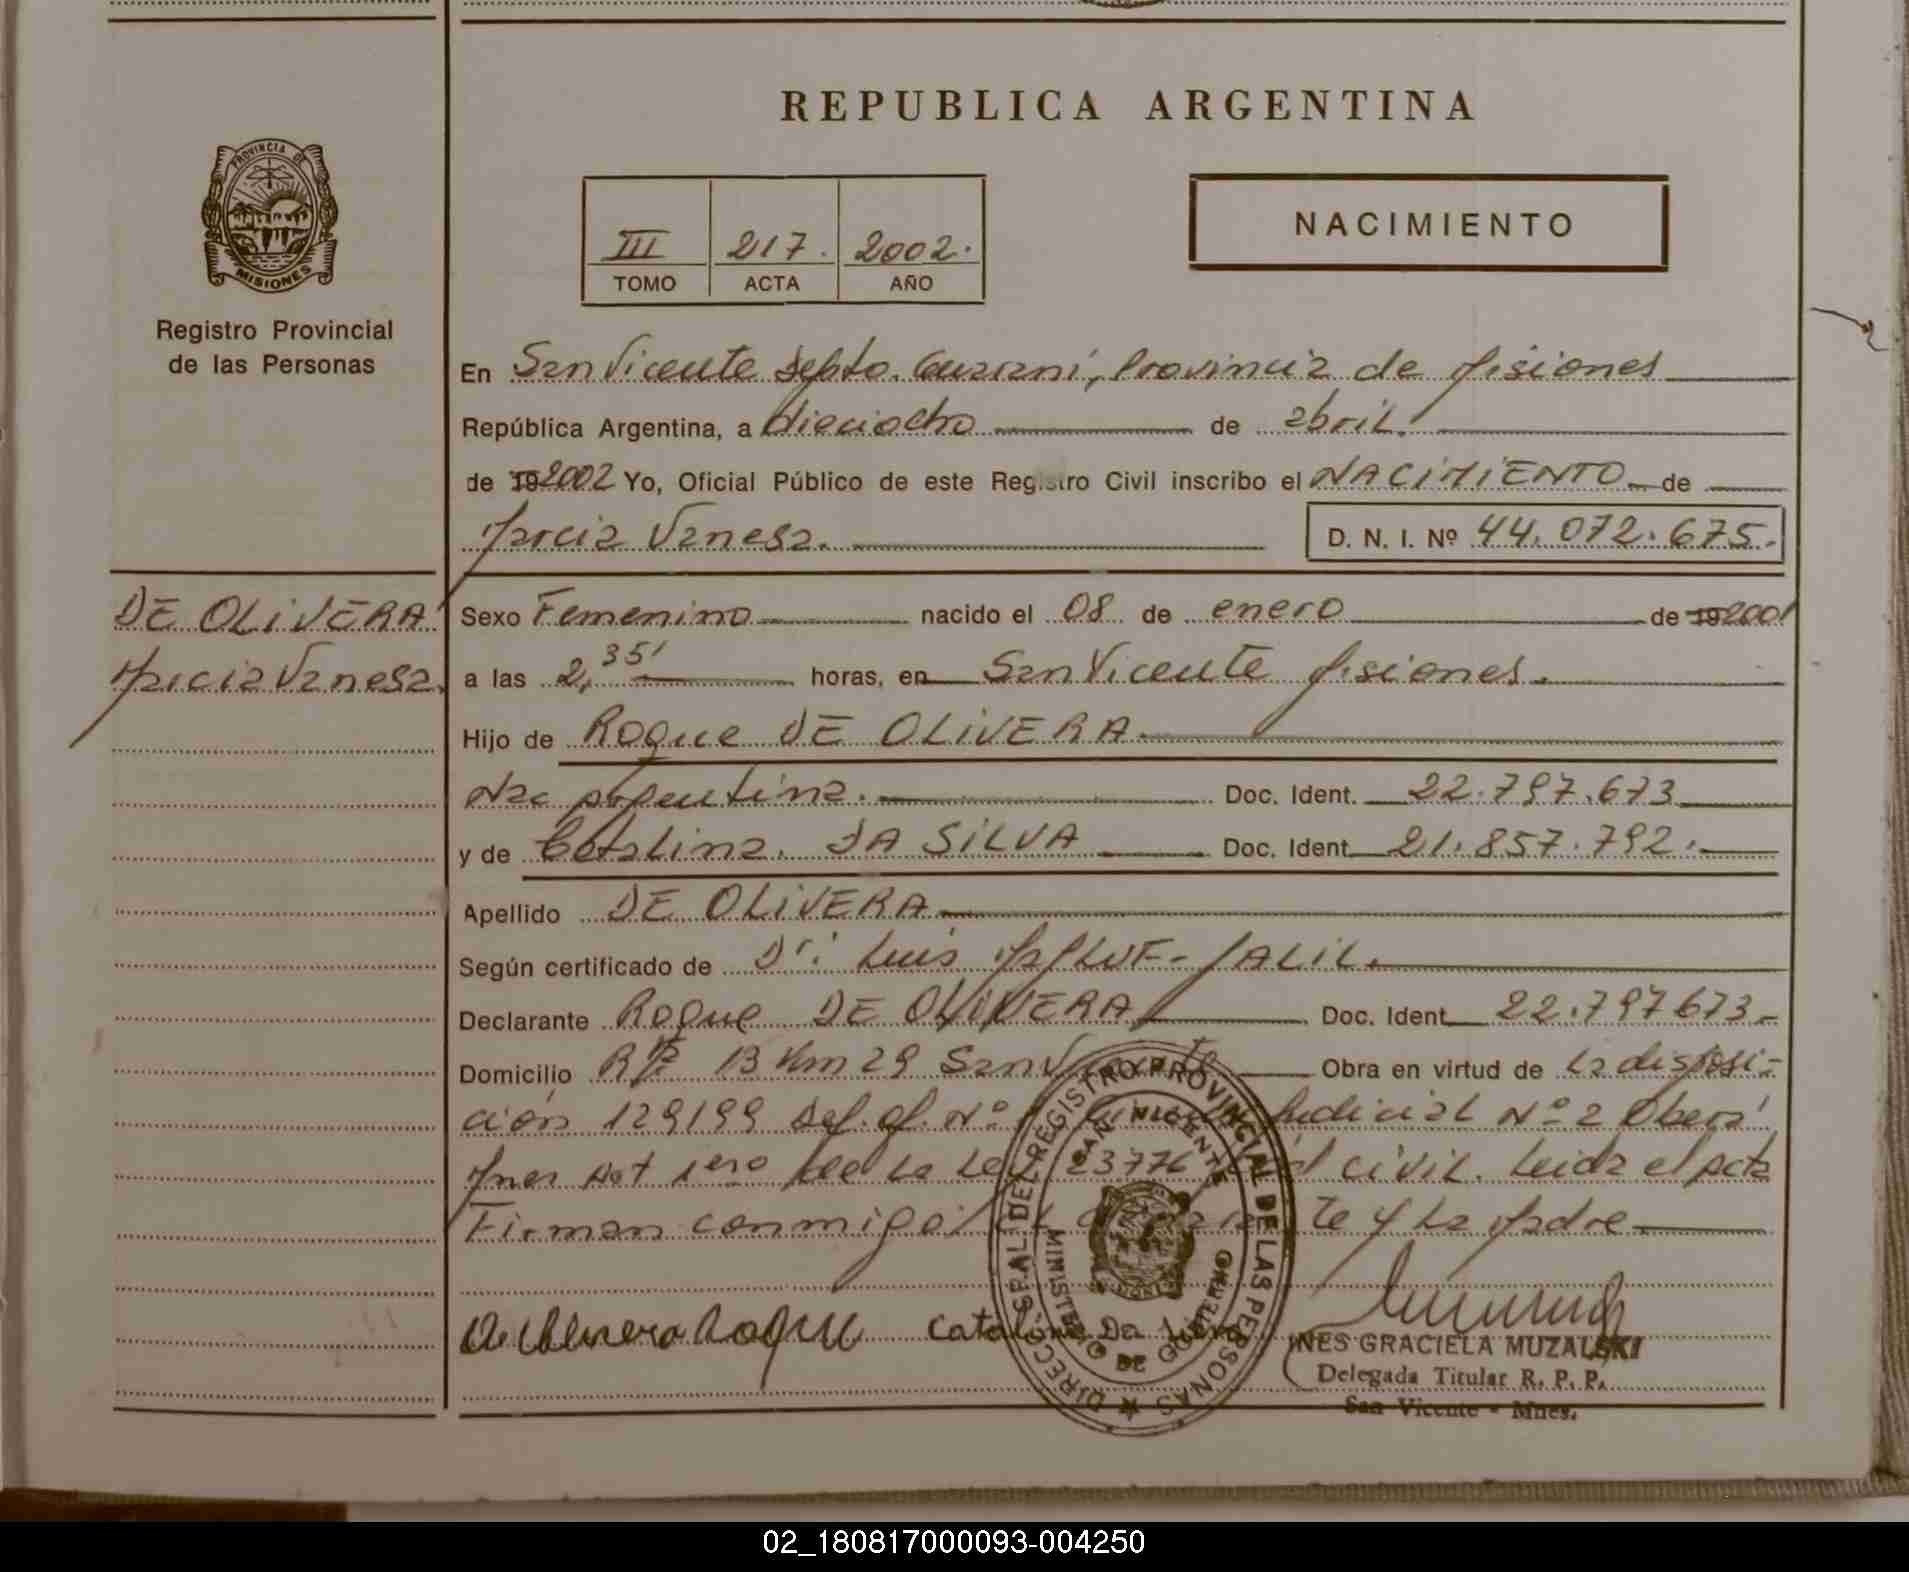 REPUBLICA ARGENTINA
PROVINCIA DE
MISIONES
Registro Provincial
de las Personas
III 217. 2002.
TOMO ACTA AÑO
NACIMIENTO
En San Vicente Depto. Guaraní, Provincia de Misiones
República Argentina, a dieciocho de abril.
de 192002 Yo, Oficial Público de este Registro Civil inscribo el NACIMIENTO de
Maria Vanesa. D. N. I. Nº 44.072.675.-
DE OLIVERA
Maria Vanesa.
Sexo Femenino nacido el 08 de enero de 192001
a las 2,35' horas, en San Vicente Misiones.
Hijo de Roque DE OLIVERA.
Nac Argentina. Doc. Ident. 22.797.673
y de Catalina. DA SILVA Doc. Ident 21.857.792.
Apellido DE OLIVERA
Según certificado de Dr. Luis JALIL.
Declarante Roque DE OLIVERA Doc. Ident 22.797673-
Domicilio 13 Km 29 San Vicente Obra en virtud de la disposi-
ción 129199 Judicial Nº 2 Oberá
1ero de la Ley 23776 civil. Leida el acta
Firman conmigo el declarante y la Madre
De Olivera Roque Catalina Da
INES GRACIELA MUZALSKI
Delegada Titular R. P. P.
San Vicente - Mnes.
DIRECC. GRAL DEL REGISTRO PROVINCIAL DE LAS PERSONAS
SAN VICENTE
MINISTERIO DE GOBIERNO
02_180817000093-004250